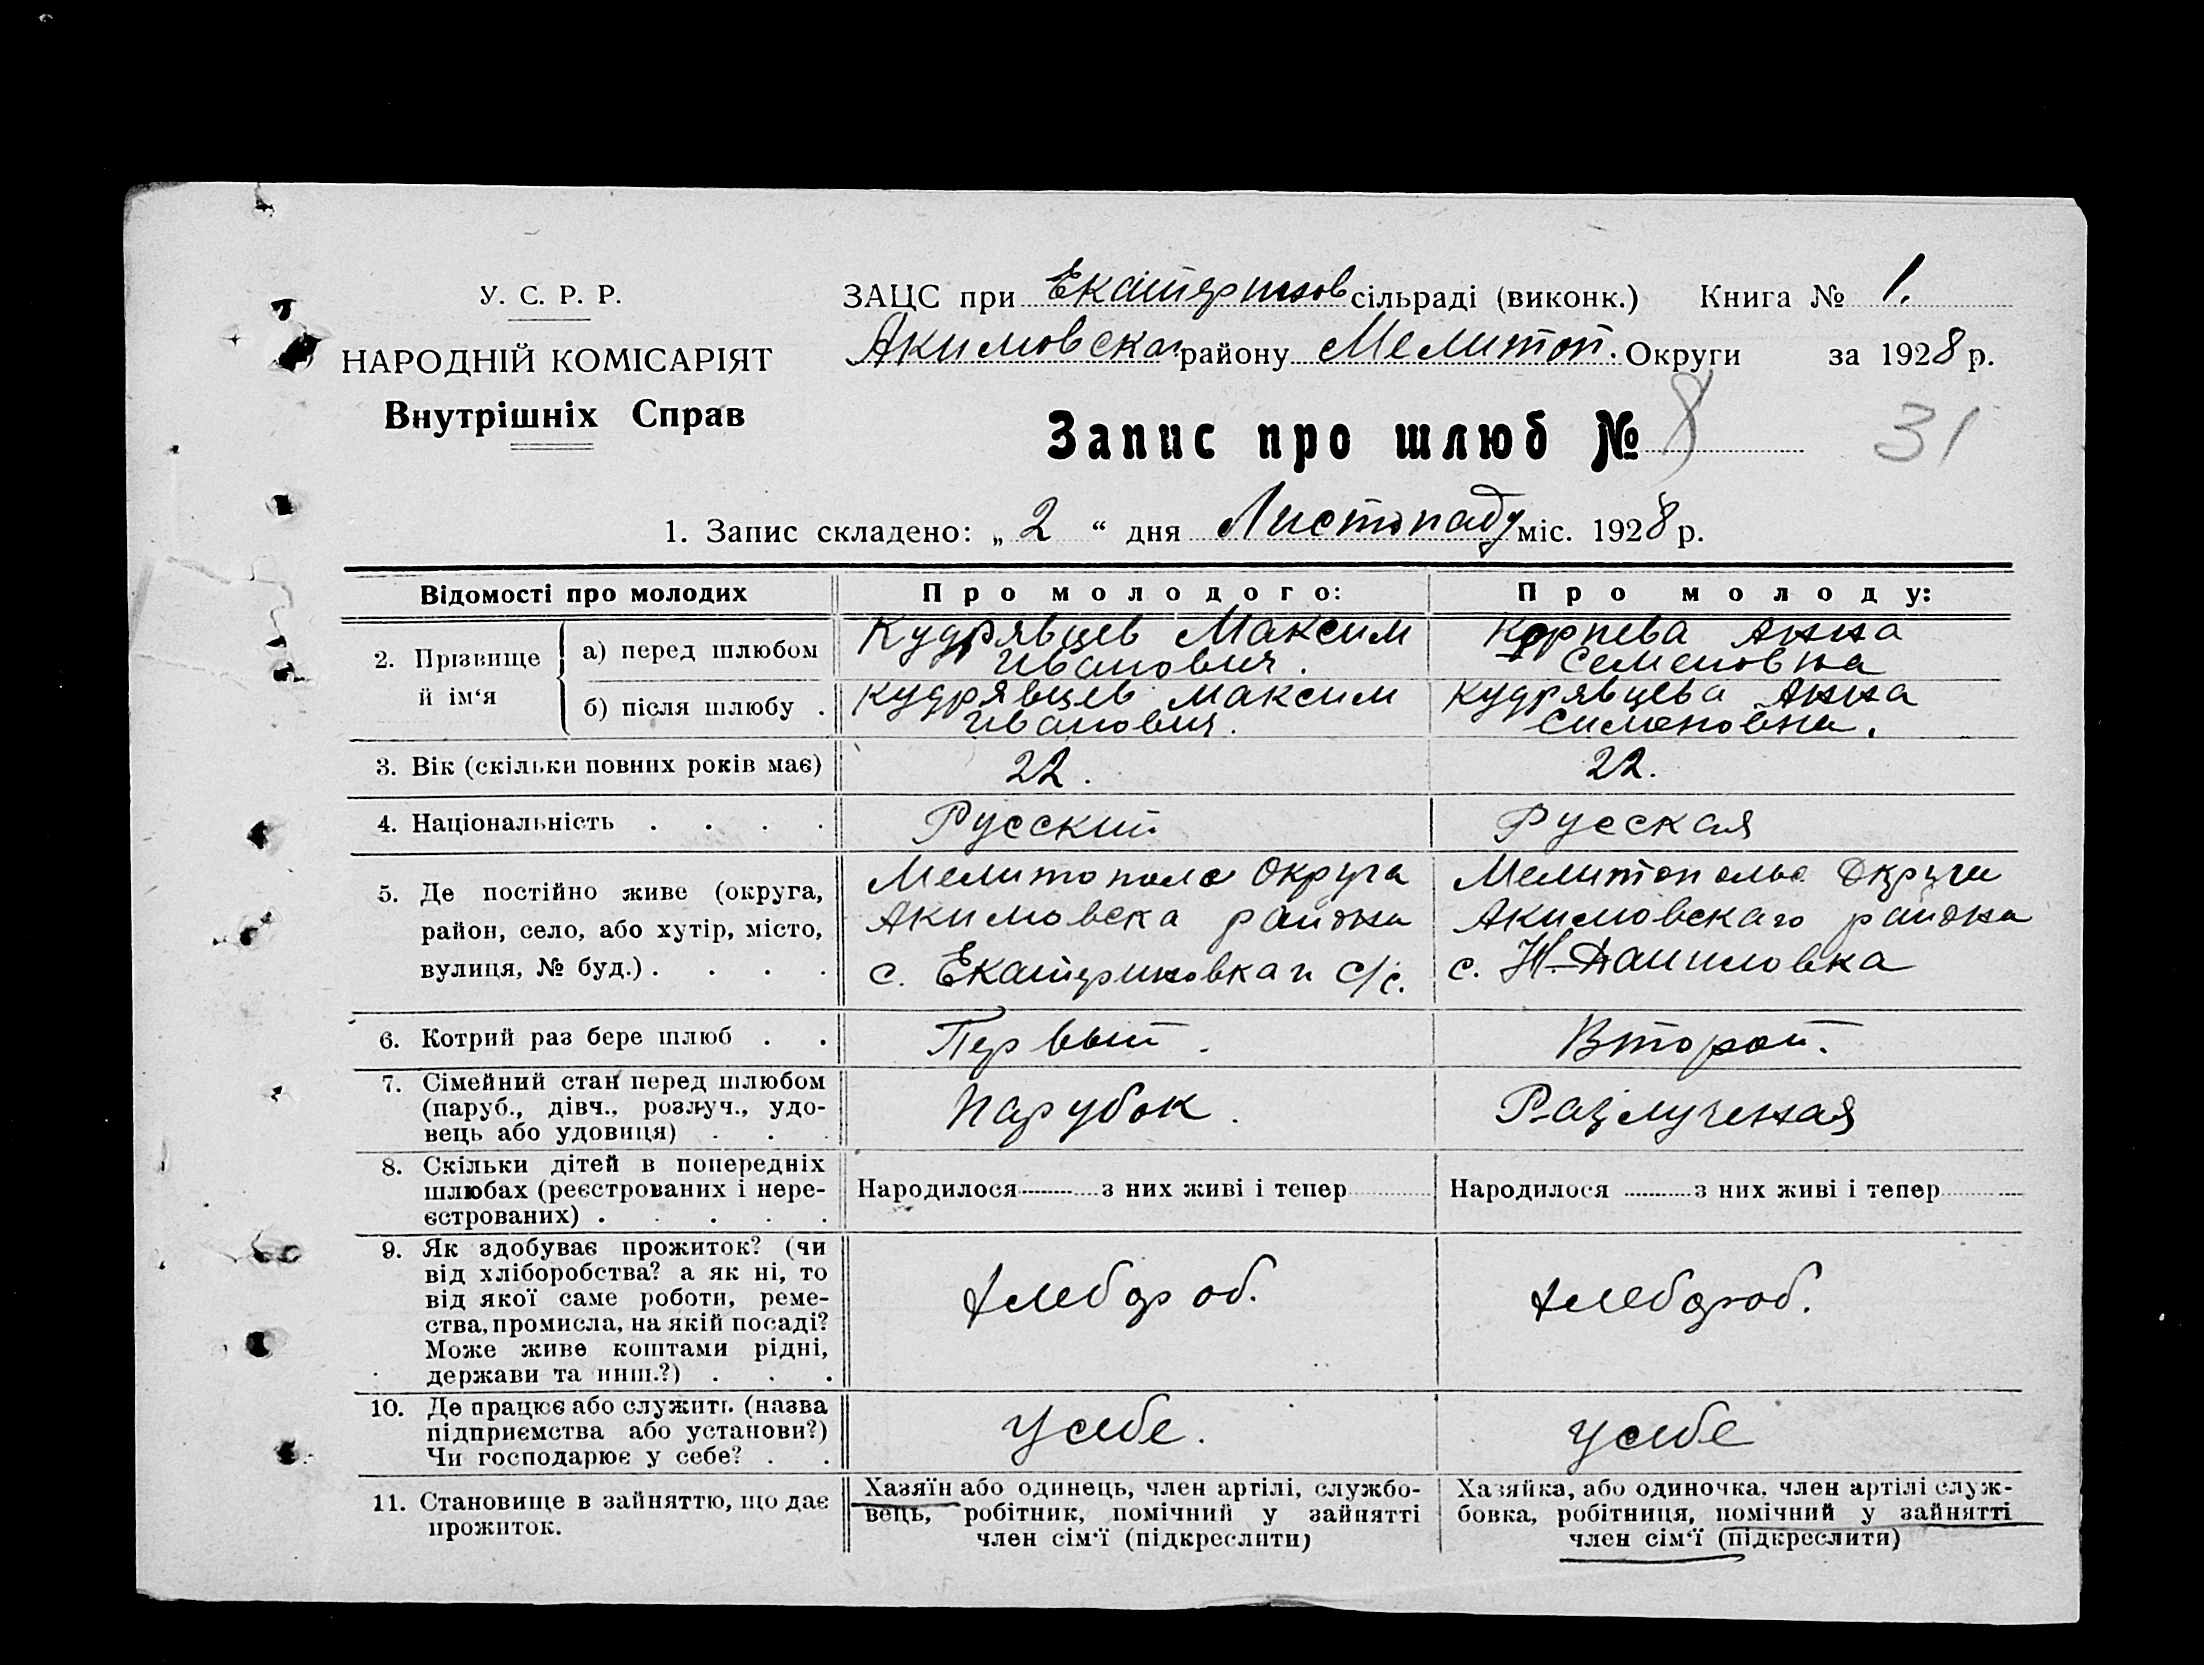 У. С. Р. Р.
НАРОДНІЙ КОМІСАРІЯТ
Внутрішніх Справ
ЗАЦС при Екатеринов сільраді (виконк.) Книга № 1.
Акимовска района Мелитоп. Округи за 1928 р.
Запис про шлюб № 8 31
1. Запис складено: „ 2 “ дня Листопаду міс. 1928 р.
Відомості про молодих
Про молодого:
Про молоду:
2. Прізвище й ім‘я
а) перед шлюбом
Кудрявцев Максим
Иванович.
Анна
Семеновна
б) після шлюбу .
Кудрявцев Максим
Иванович.
Кудрявцева Анна
Симоновна.
3. Вік (скільки повних років має)
22.
22.
4. Національність . . . .
Русский
Русская
5. Де постійно живе (округа,
район, село, або хутір, місто,
вулиця, № буд.) . . . .
Округа
Акимовска района
с. Екатериновка с/с.
Округи
Акимовскаго района
с. Даниловка
6. Котрий раз бере шлюб . .
Первый.
Второй.
7. Сімейний стан перед шлюбом
(паруб., дівч., розлуч., удо-
вець або удовиця) . . .
Парубок.
Разлученая
8. Скільки дітей в попередніх
шлюбах (реєстрованих і нере-
єстрованих) . . . . .
Народилося з них живі і тепер
Народилося з них живі і тепер
9. Як здобуває прожиток? (чи
від хліборобства? а як ні, то
від якої саме роботи, реме-
ства, промисла, на якій посаді?
Може живе коштами рідні,
держави та инш.?) . . .
Хлебороб.
Хлебороб.
10. Де працює або служить (назва
підприємства або установи?)
Чи господарює у себе? . .
У себе.
У себе
11. Становище в зайняттю, що дає
прожиток.
Хазяїн або одинець, член артілі, службо-
вець, робітник, помічний у зайнятті
член сім‘ї (підкреслити)
Хазяйка, або одиночка, член артілі служ-
бовка, робітниця, помічний у зайнятті
член сім‘ї (підкреслити)